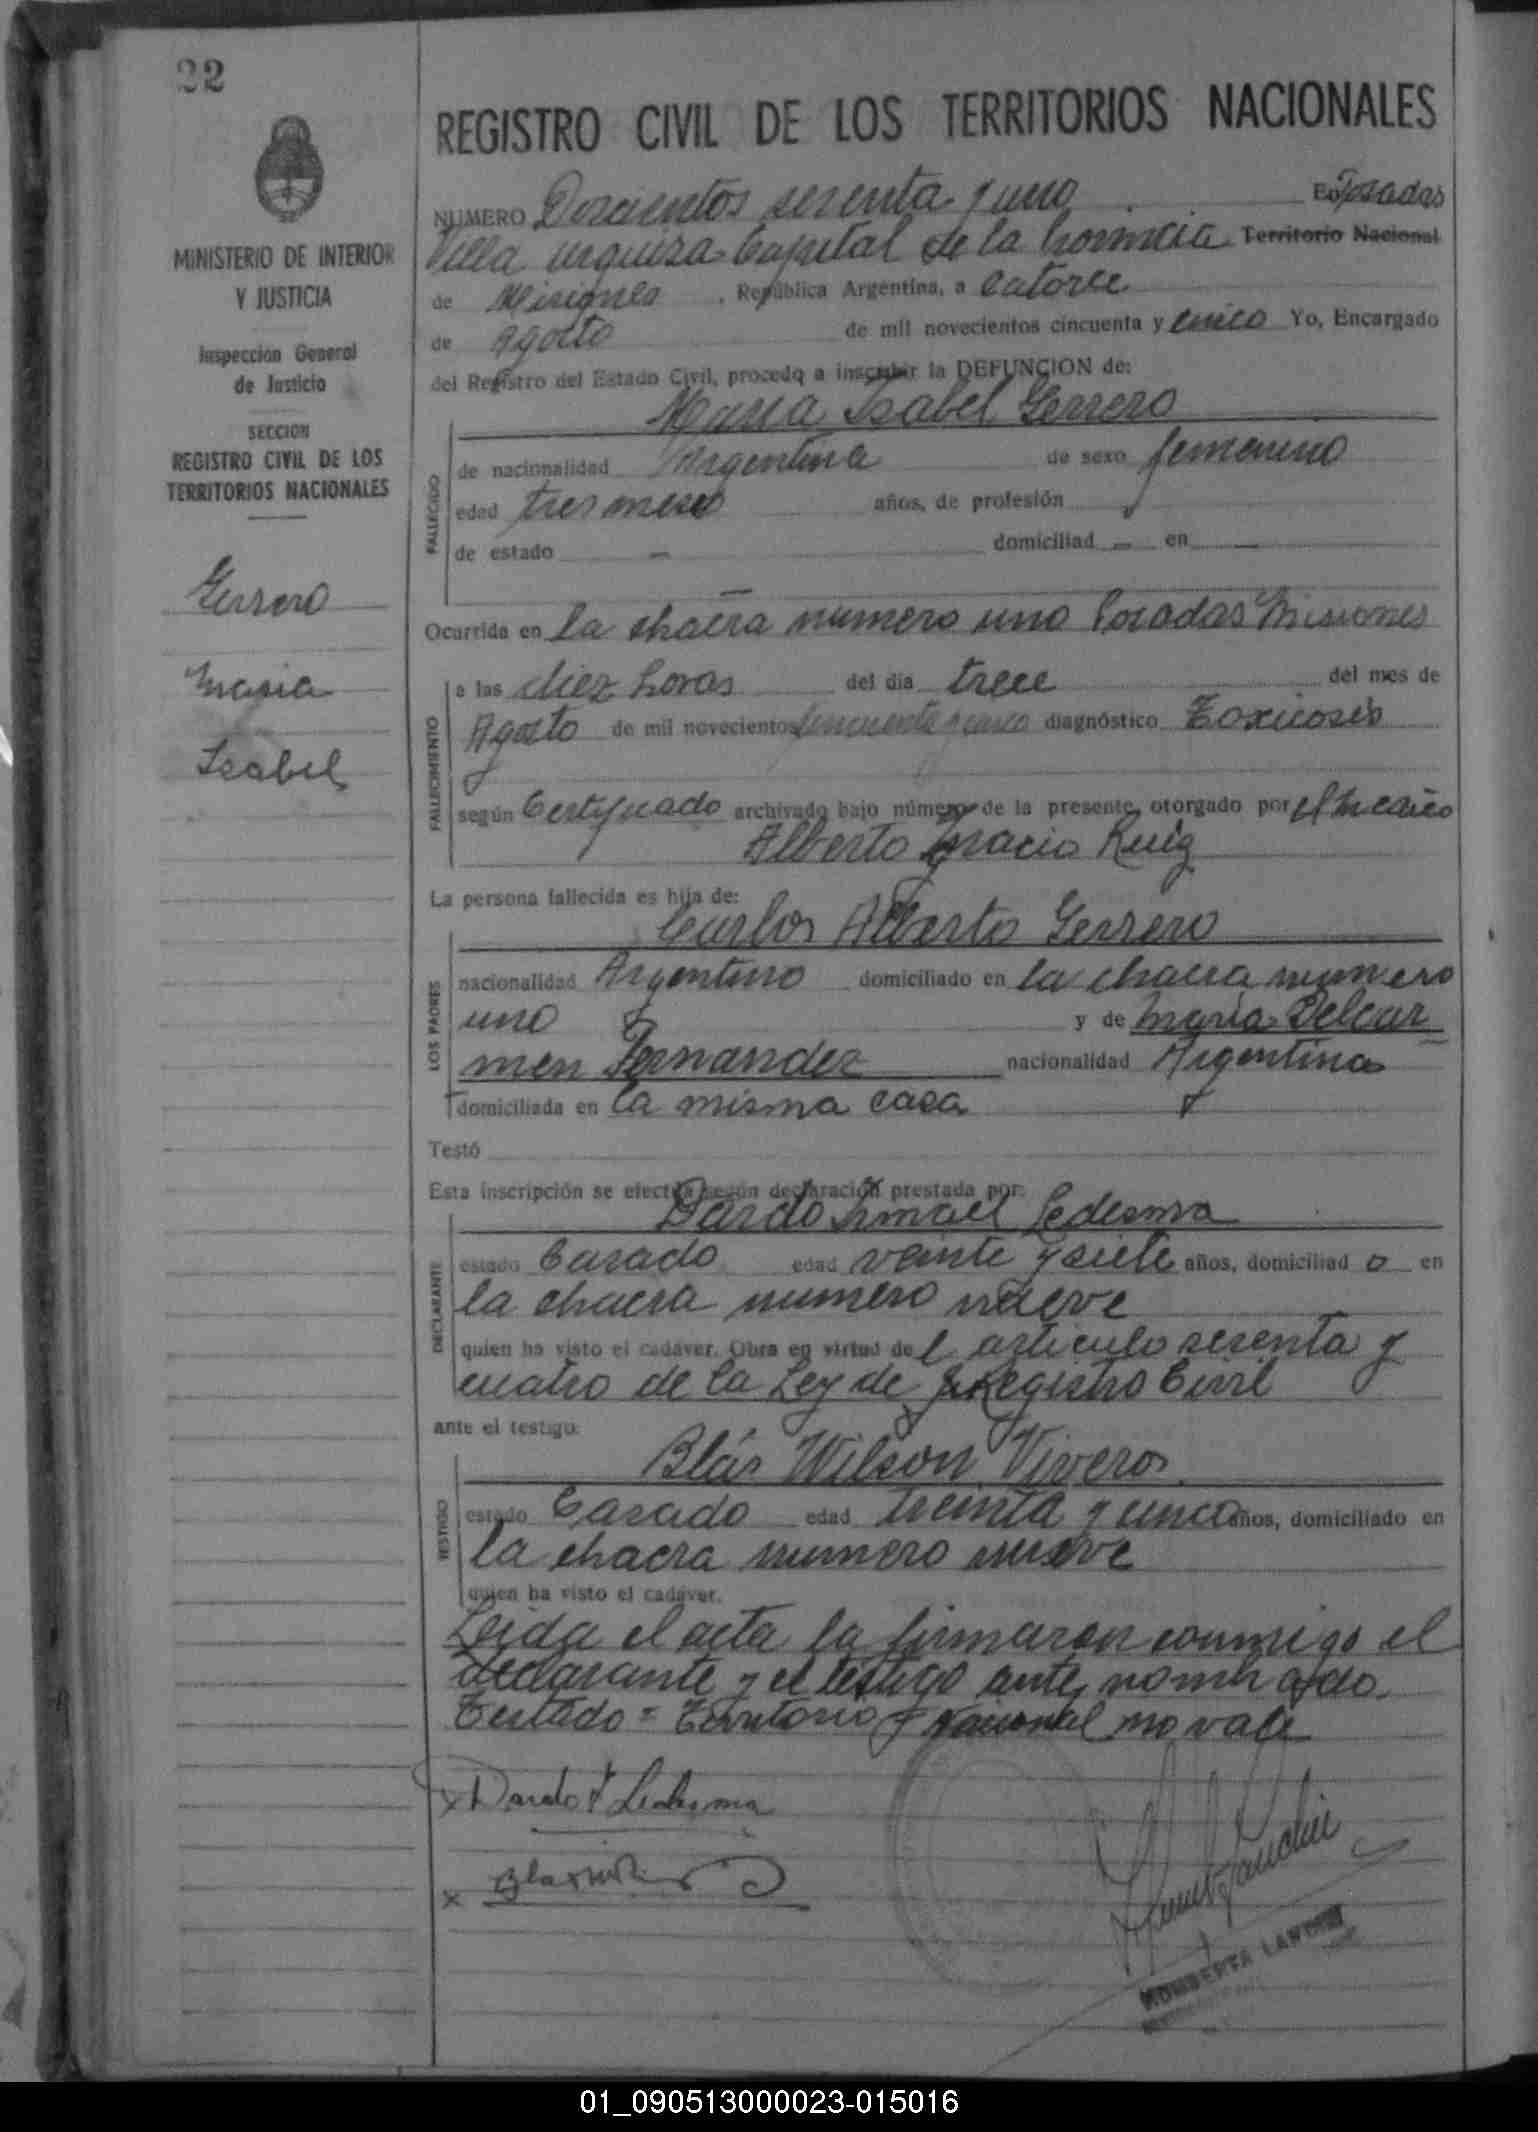 22
MINISTERIO DE INTERIOR
Y JUSTICIA
Inspección General
de Justicia
SECCION
REGISTRO CIVIL DE LOS
TERRITORIOS NACIONALES
Gerrero
Maria
Isabel
REGISTRO CIVIL DE LOS TERRITORIOS NACIONALES
NUMERO Doscientos sesenta y uno En Posadas
Villa urquiza Capital de la Provincia Territorio Nacional
de Misiones, República Argentina, a catorce
de agosto de mil novecientos cincuenta y cinco Yo, Encargado
del Registro del Estado Civil, procedo a inscribir la DEFUNCION de:
Maria Isabel Gerrero
FALLECIDO
de nacionalidad Argentina de sexo femenino
edad tres meses años, de profesión
de estado — domiciliad — en —
Ocurrida en la chacra numero uno Posadas Misiones
FALLECIMIENTO
a las diez horas del día trece del mes de
Agosto de mil novecientos cincuenta y cinco diagnóstico Toxicosis
según Certificado archivado bajo número de la presente, otorgado por el medico
Alberto Ruiz
La persona fallecida es hija de:
Carlos Alberto Gerrero
LOS PADRES
nacionalidad Argentino domiciliado en la chacra numero
uno y de Maria Delcar
men Fernandez nacionalidad Argentina
domiciliada en la misma casa
Testó
Esta inscripción se efectúa según declaración prestada por:
Dardo Ismael Ledesma
DECLARANTE
estado Casado edad veinte y siete años, domiciliad o en
la chacra numero nueve
quien ha visto el cadáver. Obra en virtud del articulo sesenta y
cuatro de la Ley de Registro Civil
ante el testigo:
Blás Wilson Viveros
TESTIGO
estado Casado edad treinta y uno años, domiciliado en
la chacra numero nueve
quien ha visto el cadáver.
Leida el acta la firmaron conmigo el
declarante y el testigo ante nombrado.
Testado = Territorio Nacional no vale
x Dardo I Ledesma
x
01_090513000023-015016